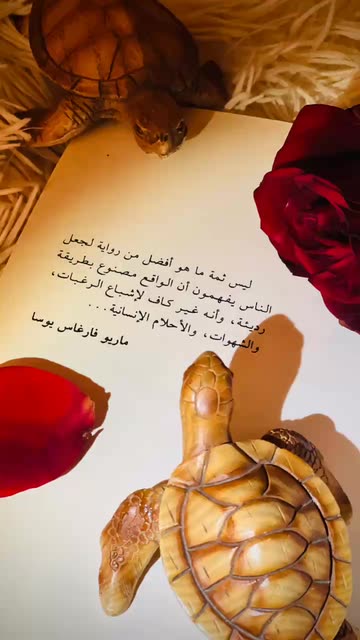 ليس ثمة ما هو أفضل من رواية لجعل
الناس يفهمون أن الواقع مصنوع بطريقة
رديئة، وأنه غير كاف لإشباع الرغبات،
والشهوات، والأحلام الإنسانية...
ماريو فارغاس يوسا